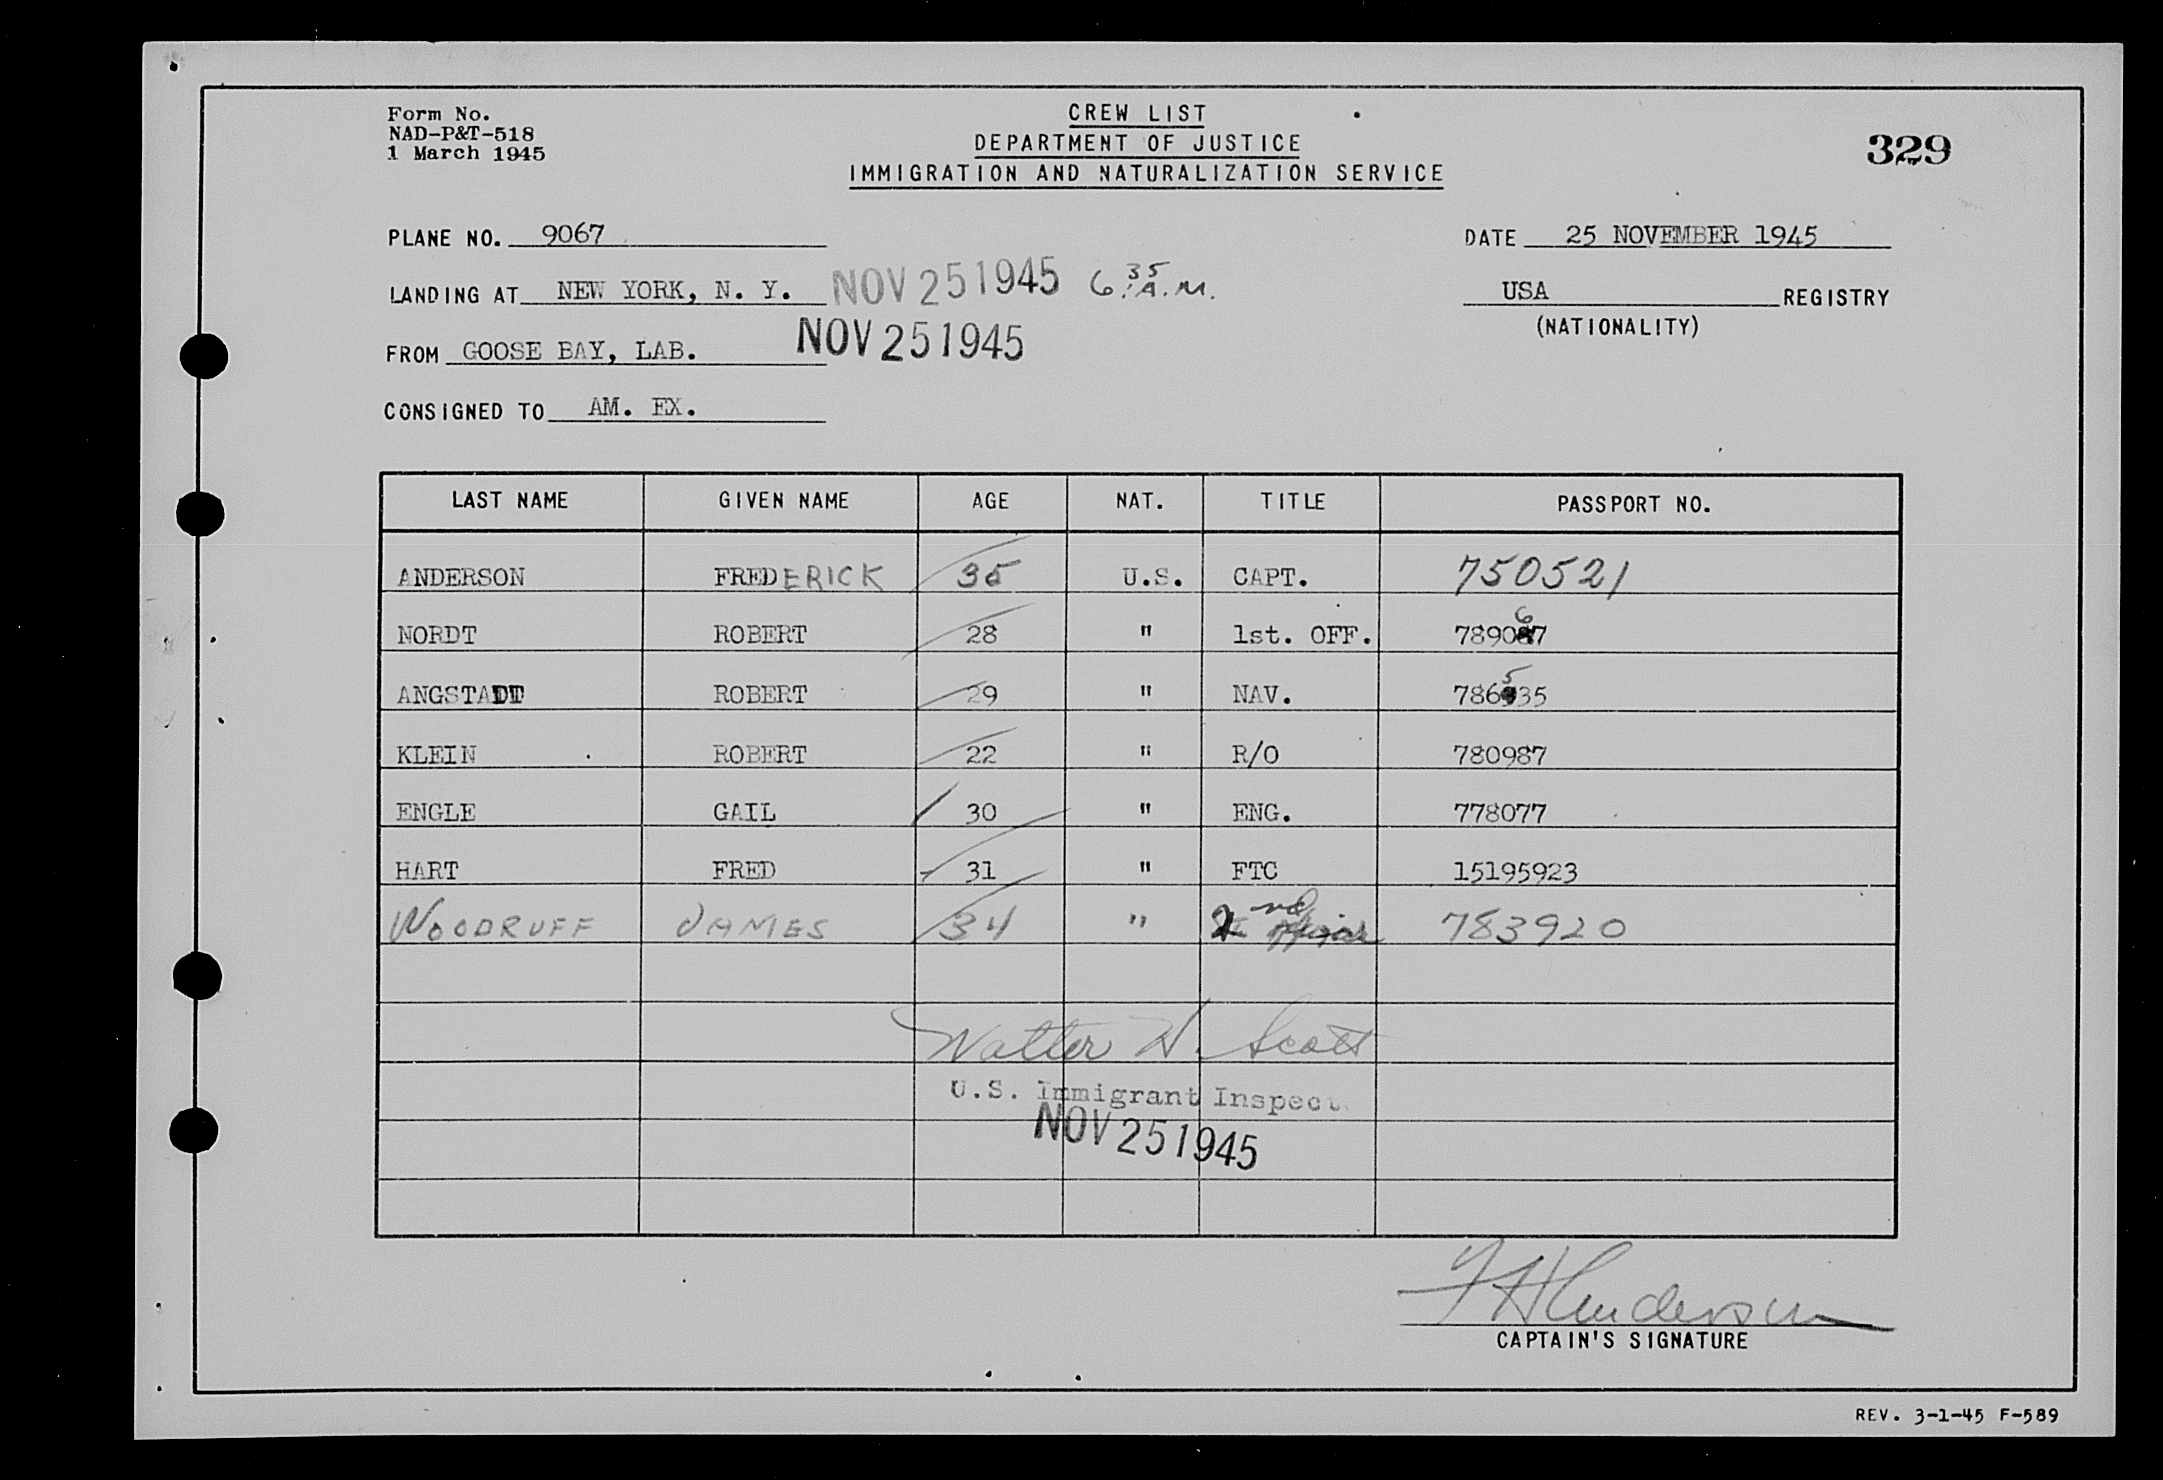 Form No.
NAD-P&T-518
1 March 1945
CREW LIST
DEPARTMENT OF JUSTICE
IMMIGRATION AND NATURALIZATION SERVICE
329
PLANE NO. 9067
DATE 25 NOVEMBER 1945
LANDING AT NEW YORK, N. Y. NOV 25 1945 6:35 A.M.
USA REGISTRY
(NATIONALITY)
FROM GOOSE BAY, LAB. NOV 25 1945
CONSIGNED TO AM. EX.
LAST NAME GIVEN NAME AGE NAT. TITLE PASSPORT NO.
ANDERSON FREDERICK 35 U.S. CAPT. 750521
NORDT ROBERT 28 " 1st. OFF. 789067
ANGSTADT ROBERT 29 " NAV. 786535
KLEIN ROBERT 22 " R/O 780987
ENGLE GAIL 30 " ENG. 778077
HART FRED 31 " FTC 15195923
WOODRUFF JAMES 34 " 2nd Officer 783920
Walter H. Scott
U.S. Immigrant Inspect
NOV 25 1945
F H Anderson
CAPTAIN'S SIGNATURE
REV. 3-1-45 F-589